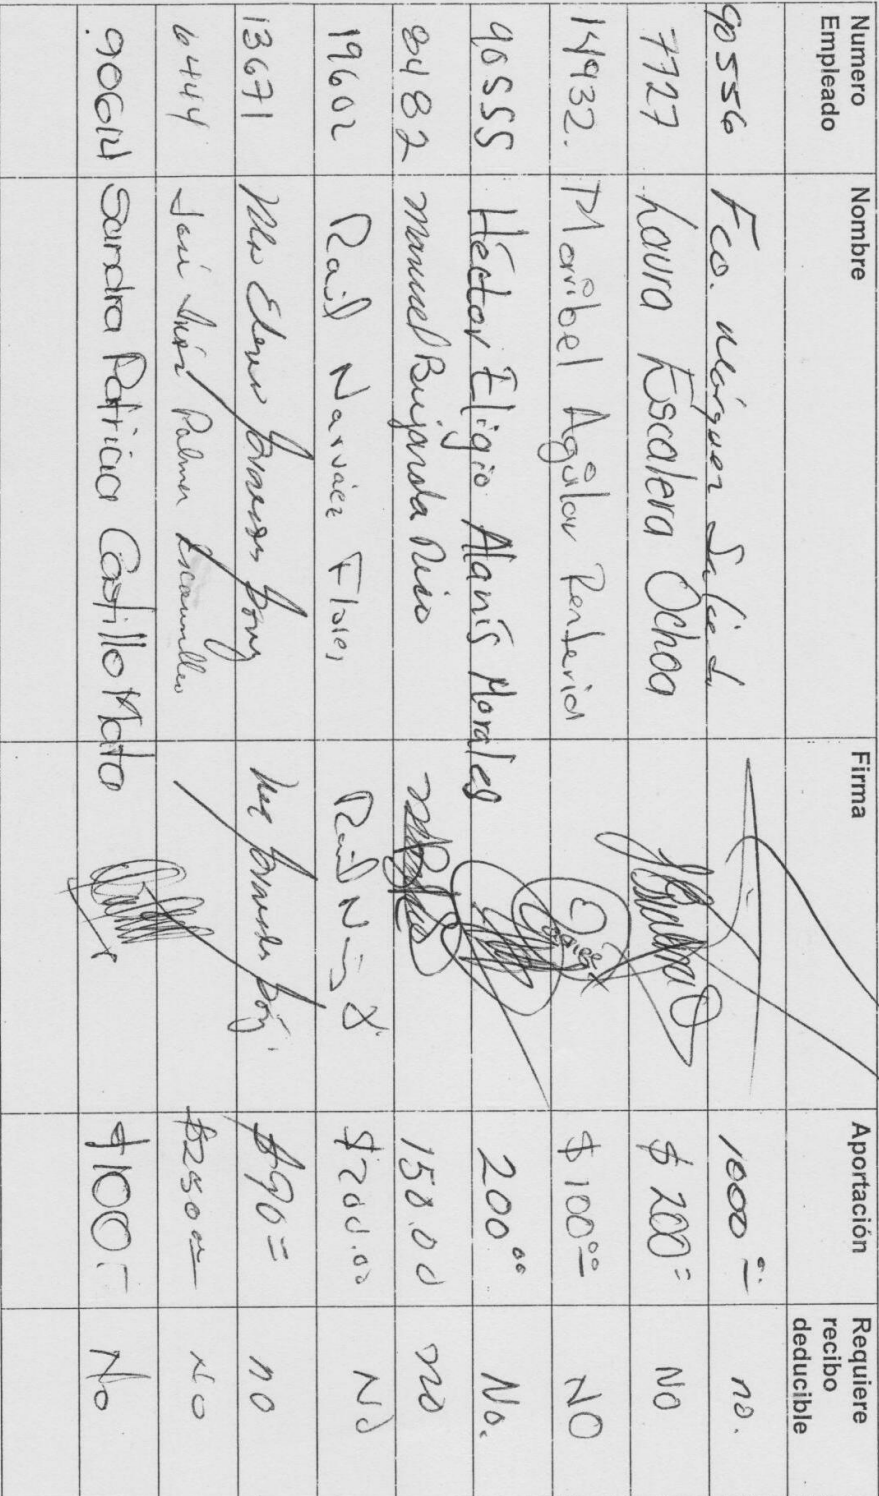 Numero Empleado Nombre Firma Aportación Requiere recibo deducible
90556 Fco. Márquez 1000.00 no.
7727 Laura Escalera Ochoa $ 200= NO
14932. Maribel Aguilar Renteria $ 100.00 NO
90555 Héctor Eligio Alanís Morales 200.00 No.
8482 Manuel Bujanda Rico 150.00 no
19602 Raúl Narváez Flores $200.00 No
13671 $90= no
6444 José Palma $250.00 NO
90614 Sandra Patricia Castillo Mato $100.- No